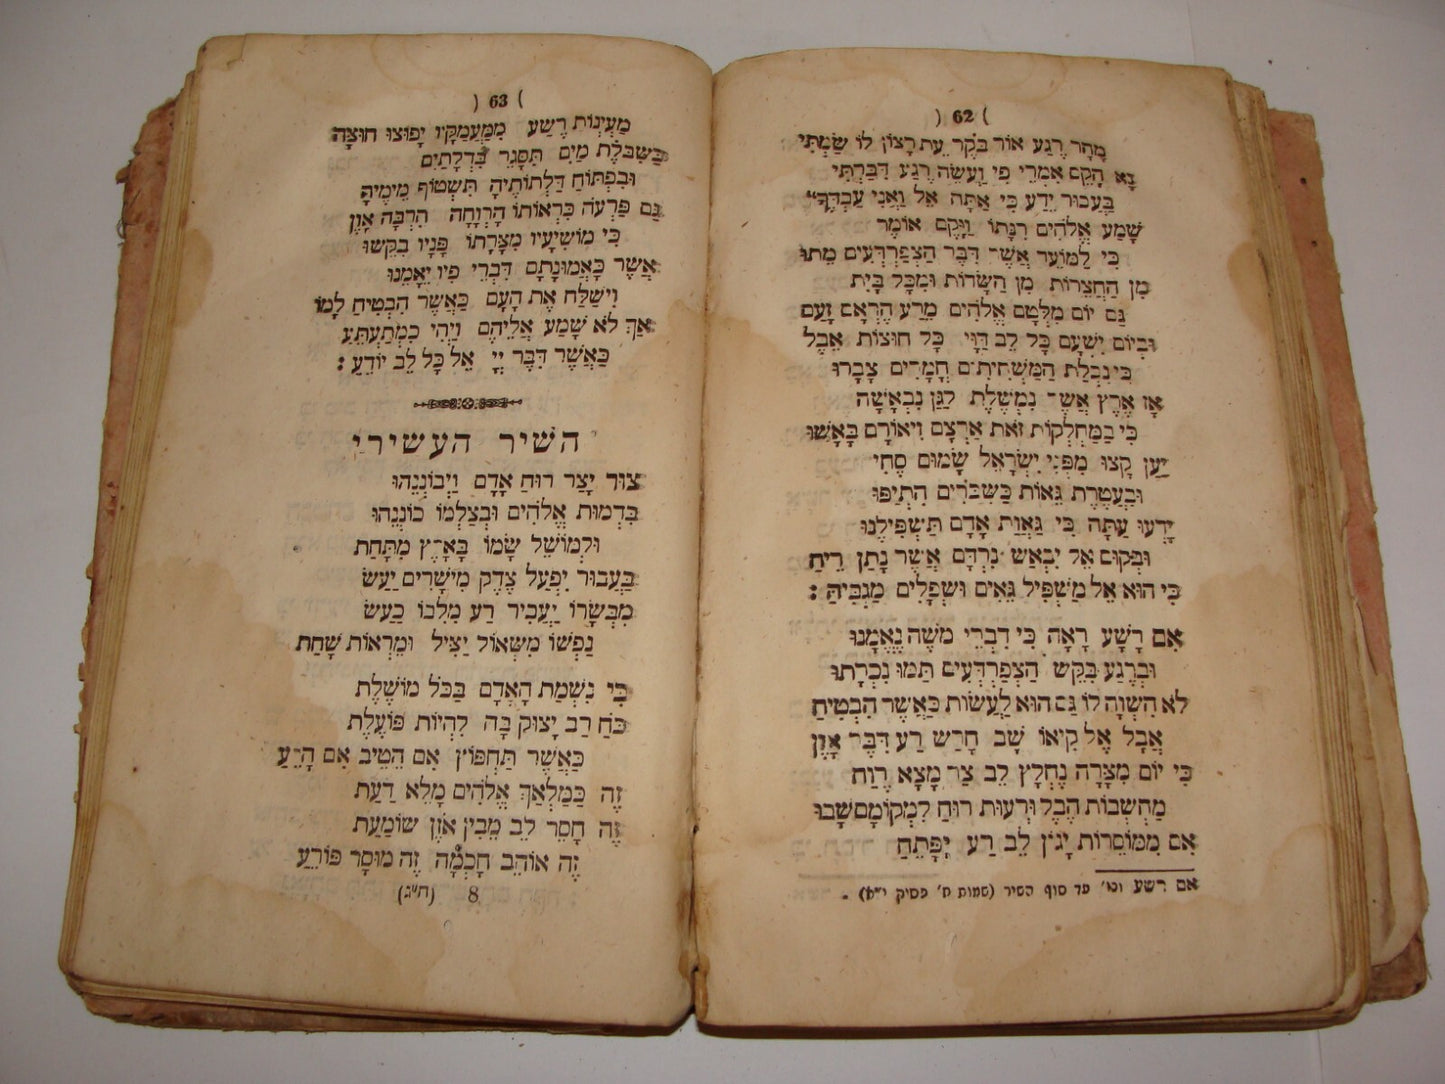 ( 62 )
מָחָר רֶגַע אוֹר בֹּקֶר עֵת רָצוֹן לוֹ שַׂמְתִּי
נָא הָקֵם אִמְרֵי פִי וַעֲשֵׂה רֶגַע דִּבַּרְתִּי
בַּעֲבוּר יֵדַע כִּי אַתָּה אֵל וַאֲנִי עַבְדֶּךָ״
שָׁמַע אֱלֹהִים רִנָּתוֹ וַיָּקֶם אוֹמֶר
כִּי לַמּוֹעֵד אֲשֶׁר דִּבֶּר הַצְפַרְדְּעִים מֵתוּ
מִן הַחֲצֵרוֹת מִן הַשָּׂדוֹת וּמִכָּל בָּיִת
גַּם יוֹם מִלְּטָם אֱלֹהִים מֵרַע הֶרְאָם זָעַם
וּבְיוֹם יִשְׁעָם כָּל לֵב דַּוָּי כָּל חוּצוֹת אֵבֶל
כִּי נִבְלַת הַמַּשְׁחִיתִים חֳמָרִים צָבָרוּ
אָז אֶרֶץ אֲשֶׁר נִמְשֶׁלֶת לַגַּן נִבְאָשָׁה
כִּי בַמַּחְלְקוֹת זֹאת אַרְצָם וִיאוֹרָם בָּאָשׁוּ
יַעַן קָצוּ מִפְּנֵי יִשְׂרָאֵל שָׂמוּם סֶחִי
וּבַעֲטֶרֶת גֵּאוּת כַּשִּׁכֹּרִים הִתְיַפּוּ
יָדְעוּ עַתָּה כִּי גַּאֲוַת אָדָם תַּשְׁפִּילֶנּוּ
וּפִקּוּס אֵל יִבְאַשׁ נִרְדָּם אֲשֶׁר נָתַן רֵיחַ
כִּי הוּא אֵל מַשְׁפִּיל גֵּאִים וּשְׁפָלִים מַגְבִּיהַּ :
אִם רָשָׁע רָאָה כִּי דִבְרֵי מֹשֶׁה נֶאֱמָנוּ
וּבְרֶגַע בִּקֵּשׁ הַצְפַרְדְּעִים תַּמּוּ נִכְרָתוּ
לֹא הִשְׁוָה לוֹ גַּם הוּא לַעֲשׂוֹת כַּאֲשֶׁר הִבְטִיחַ
אֲבָל אֶל קִיאוֹ שָׁב חָרַשׁ רַע דִּבֶּר אָוֶן
כִּי יוֹם מִצָּרָה נֶחְלָץ לֵב צַר מָצָא רֶוַח
מַחְשְׁבוֹת הֶבֶל וּרְעוּת רוּחַ לִמְקוֹמָם שָׁבוּ
אִם מִמּוֹסֵרוֹת יָגוֹן לֵב רַע יְפַתֵּחַ
אם רשע וכו׳ עד סוף השיר (שמות ח׳ פסוק י״א) .
( 63 )
מַעְיְנוֹת רֶשַׁע מִמַּעֲמַקָּיו יָפוּצוּ חוּצָה
כְּשִׁבֹּלֶת מַיִם תִּסָּגֵר בִּדְלָתַיִם
וּבִפְתוֹחַ דַּלְתוֹתֶיהָ תִּשְׁטוֹף מֵימֶיהָ
גַּם פַּרְעֹה כִּרְאוֹתוֹ הָרְוָחָה הִרְבָּה אָוֶן
כִּי מוֹשִׁיעָיו מִצָּרָתוֹ פָּנָיו בִּקֵּשׁוּ
אֲשֶׁר כָּאֱמוּנָתָם דִּבְרֵי פִיו יֵאָמֵנוּ
וִישַׁלַּח אֶת הָעָם כַּאֲשֶׁר הִבְטִיחַ לָמוֹ
אַךְ לֹא שָׁמַע אֲלֵיהֶם וַיְהִי כִּמְתַעְתֵּעַ
כַּאֲשֶׁר דִּבֶּר יְיָ אֵל כָּל לֵב יוֹדֵעַ :
השיר העשירי
צוּר יָצַר רוּחַ אָדָם וַיְבוֹנְנֵהוּ
בִּדְמוּת אֱלֹהִים וּבְצַלְמוֹ כּוֹנְנֵהוּ
וּלְמוֹשֵׁל שָׂמוֹ בָּאָרֶץ מִתַּחַת
בַּעֲבוּר יִפְעַל צֶדֶק מֵישָׁרִים יַעַשׂ
מִבְּשָׂרוֹ יַעֲבִיר רַע מִלִּבּוֹ כַעַשׂ
נַפְשׁוֹ מִשְּׁאוֹל יַצִּיל וּמֵרְאוֹת שָׁחַת
כִּי נִשְׁמַת הָאָדָם בַּכֹּל מוֹשֶׁלֶת
כֹּחַ רַב יָצוּק בָּהּ לִהְיוֹת פּוֹעֶלֶת
כַּאֲשֶׁר תַּחְפּוֹץ אִם הֵטִיב אִם הָרֵעַ
זֶה כְּמַלְאַךְ אֱלֹהִים מָלֵא דַעַת
זֶה חָסֵר לֵב מֵבִין אֹזֶן שׁוֹמַעַת
זֶה אוֹהֵב חָכְמָה זֶה מוּסָר פּוֹרֵעַ
8 (ח״ג)